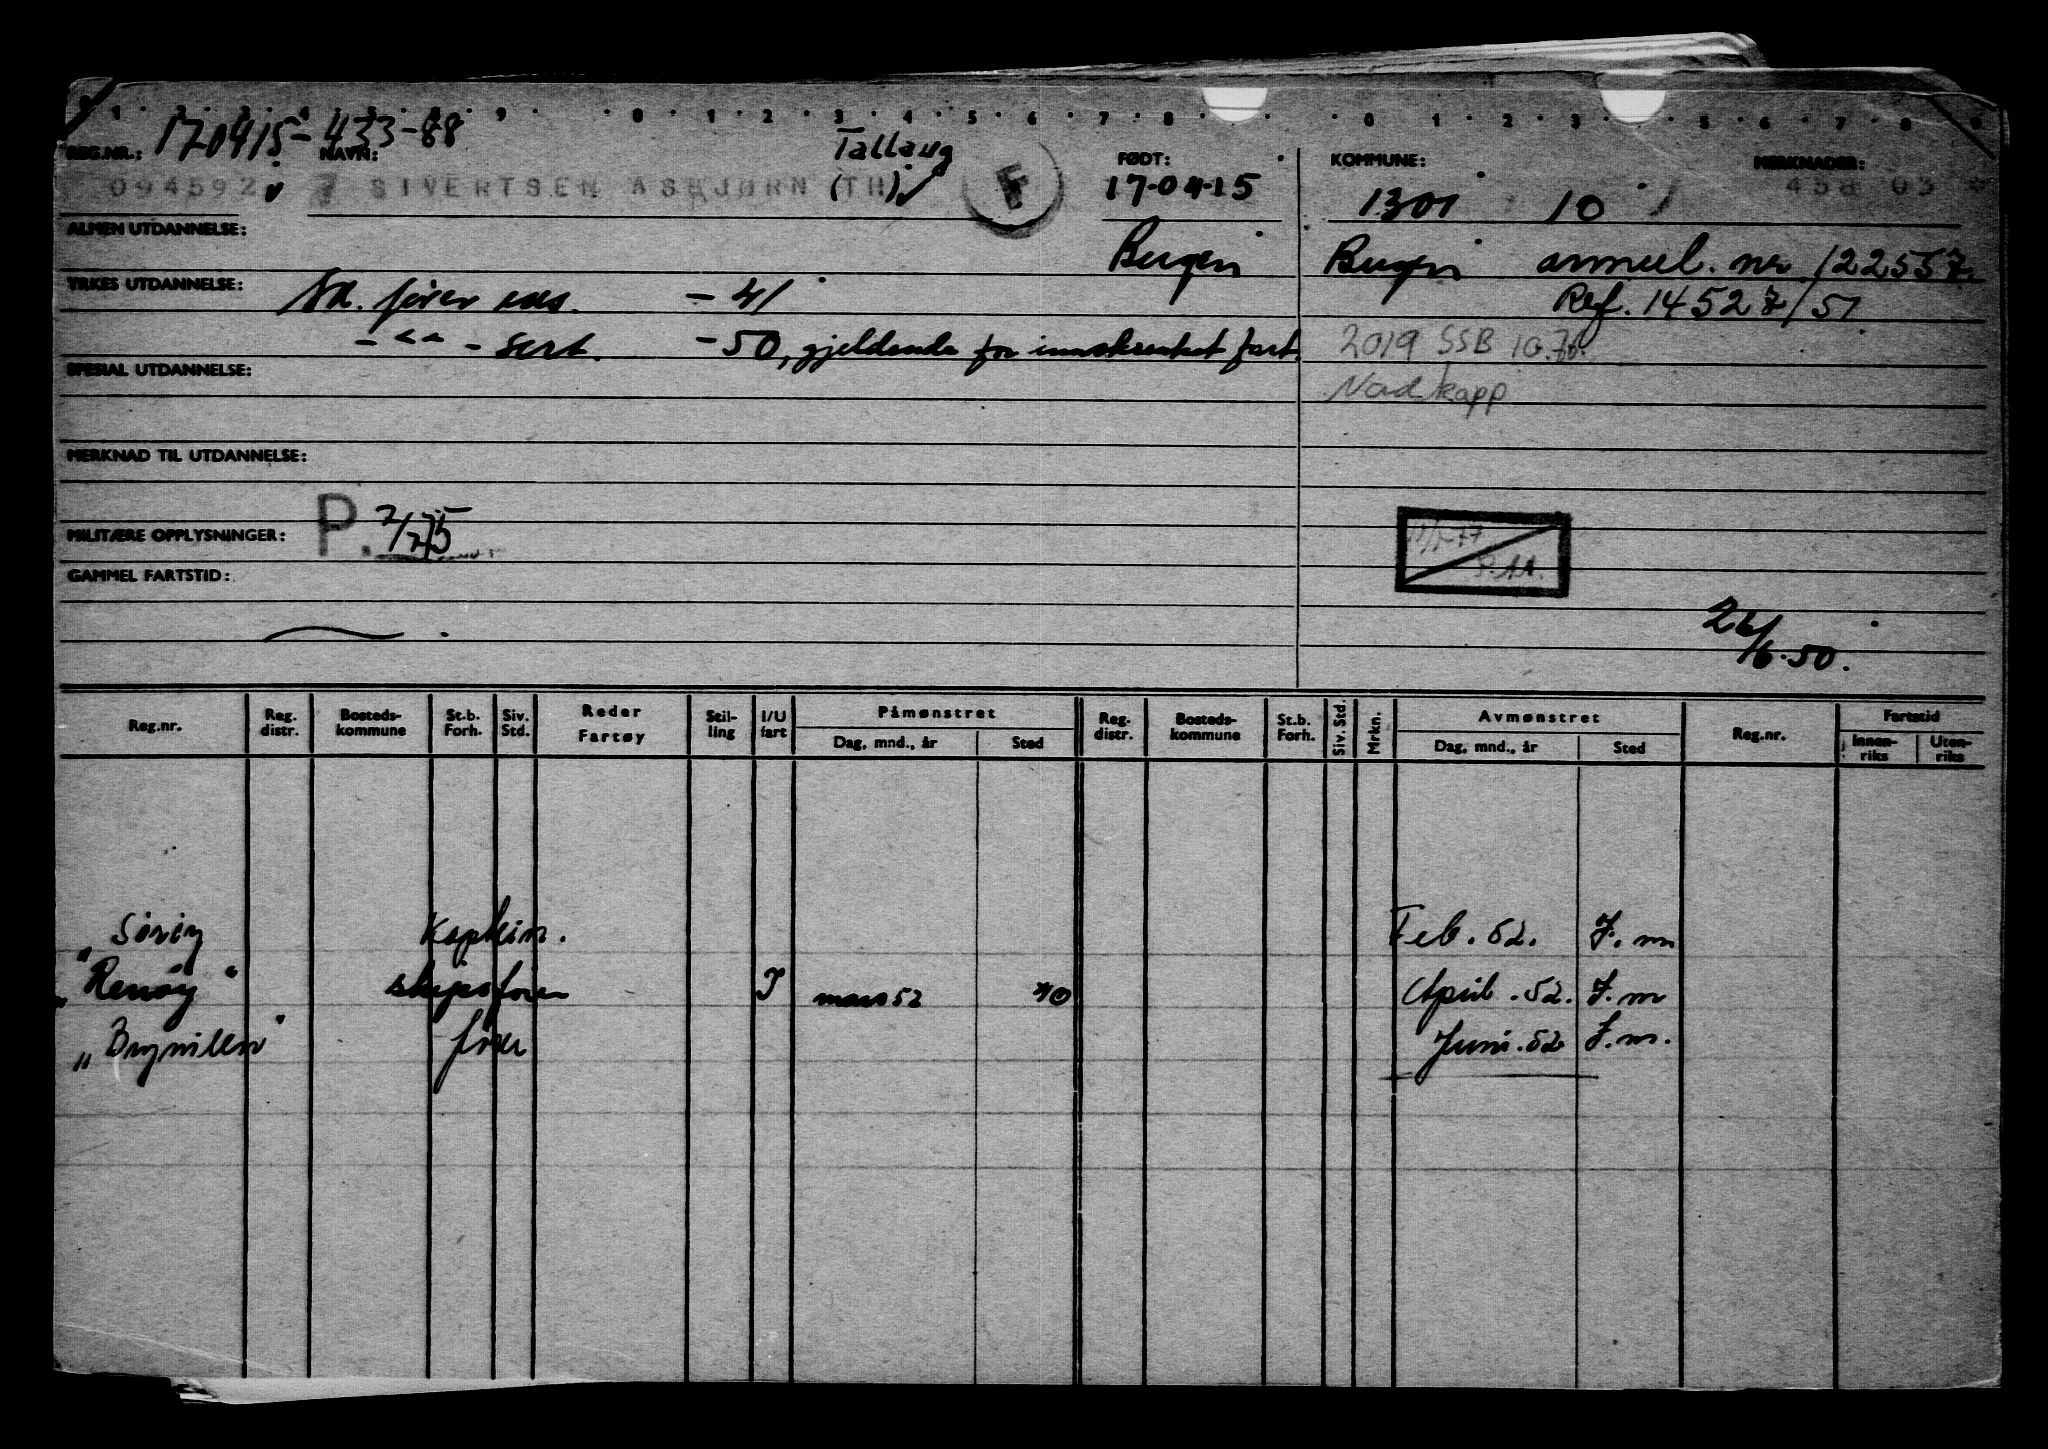 170915-433-88
REG.NR.: NAVN: Tallaug FØDT: KOMMUNE: MERKNADER:
094592 SIVERTSEN ASBJØRN (TH) F 17-04-15 1301 10 458 03 *
ALMEN UTDANNELSE: Bergen Bergen anmeel. nr 122557.
YRKES UTDANNELSE: Sk. fører eks. - 41 Ref. 14527/51
-"- sert. -50, gjeldende for innskrenket fart. 2019 SSB 10.70.
SPESIAL UTDANNELSE: Nordkapp
MERKNAD TIL UTDANNELSE:
MILITÆRE OPPLYSNINGER: P. 2/75
GAMMEL FARTSTID:
26/6.50.
Reg.nr. Reg. distr. Bosteds-kommune St.b. Forh. Siv. Std. Reder Fartøy Stil-ling I/U fart Påmønstret Dag, mnd., år Sted Reg. distr. Bosteds-kommune St.b. Forh. Siv. Std. Mrkn. Avmønstret Dag, mnd., år Sted Reg.nr. Fartstid Innen-riks Uten-riks
Sørøy Kaptein. Feb. 52. F.m
"Renøy" skipsfører mars 52 40 April. 52. F.m
"Brynilen" fører Juni. 52 F.m.